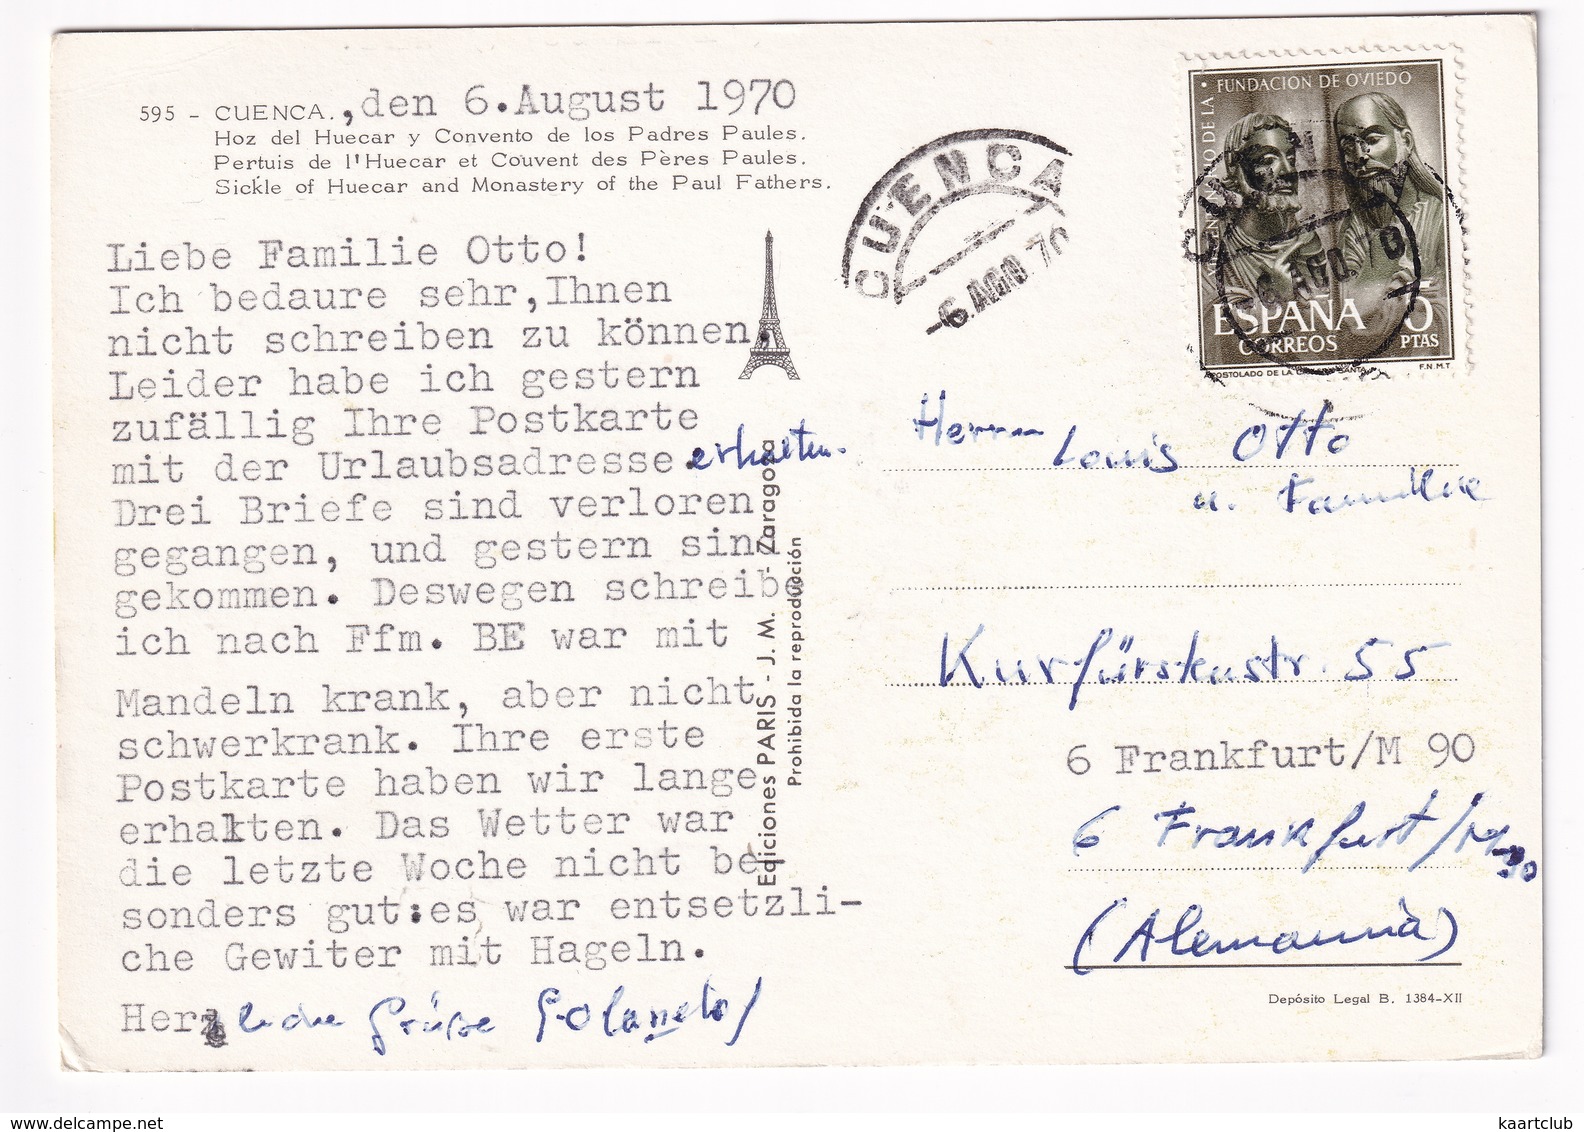 595 - CUENCA., den 6.August 1970
Hoz del Huecar y Convento de los Padres Paules.
Pertuis de l'Huecar et Couvent des Pères Paules.
Sickle of Huecar and Monastery of the Paul Fathers.
Liebe Familie Otto!
Ich bedaure sehr,Ihnen
nicht schreiben zu können.
Leider habe ich gestern
zufällig Ihre Postkarte
mit der Urlaubsadresse.erhalten.
Drei Briefe sind verloren
gegangen, und gestern sind
gekommen. Deswegen schreibe
ich nach Ffm. BE war mit
Mandeln krank, aber nicht
schwerkrank. Ihre erste
Postkarte haben wir lange
erhalten. Das Wetter war
die letzte Woche nicht be-
sonders gut:es war entsetzli-
che Gewiter mit Hageln.
Herzliche Grüsse
Ediciones PARIS - J. M. - Zaragoza
Prohibida la reproducción
CUENCA
-6.AGO 70
FUNDACION DE OVIEDO
ESPAÑA
CORREOS
5
PTAS
F.N.M.T.
CUENCA
6 AGO. 70
Herrn Louis Otto
u. Familie
Kurfürstenstr. 55
6 Frankfurt/M 90
6 Frankfurt/M 90
(Alemannia)
Depósito Legal B. 1384-XII
kaartclub